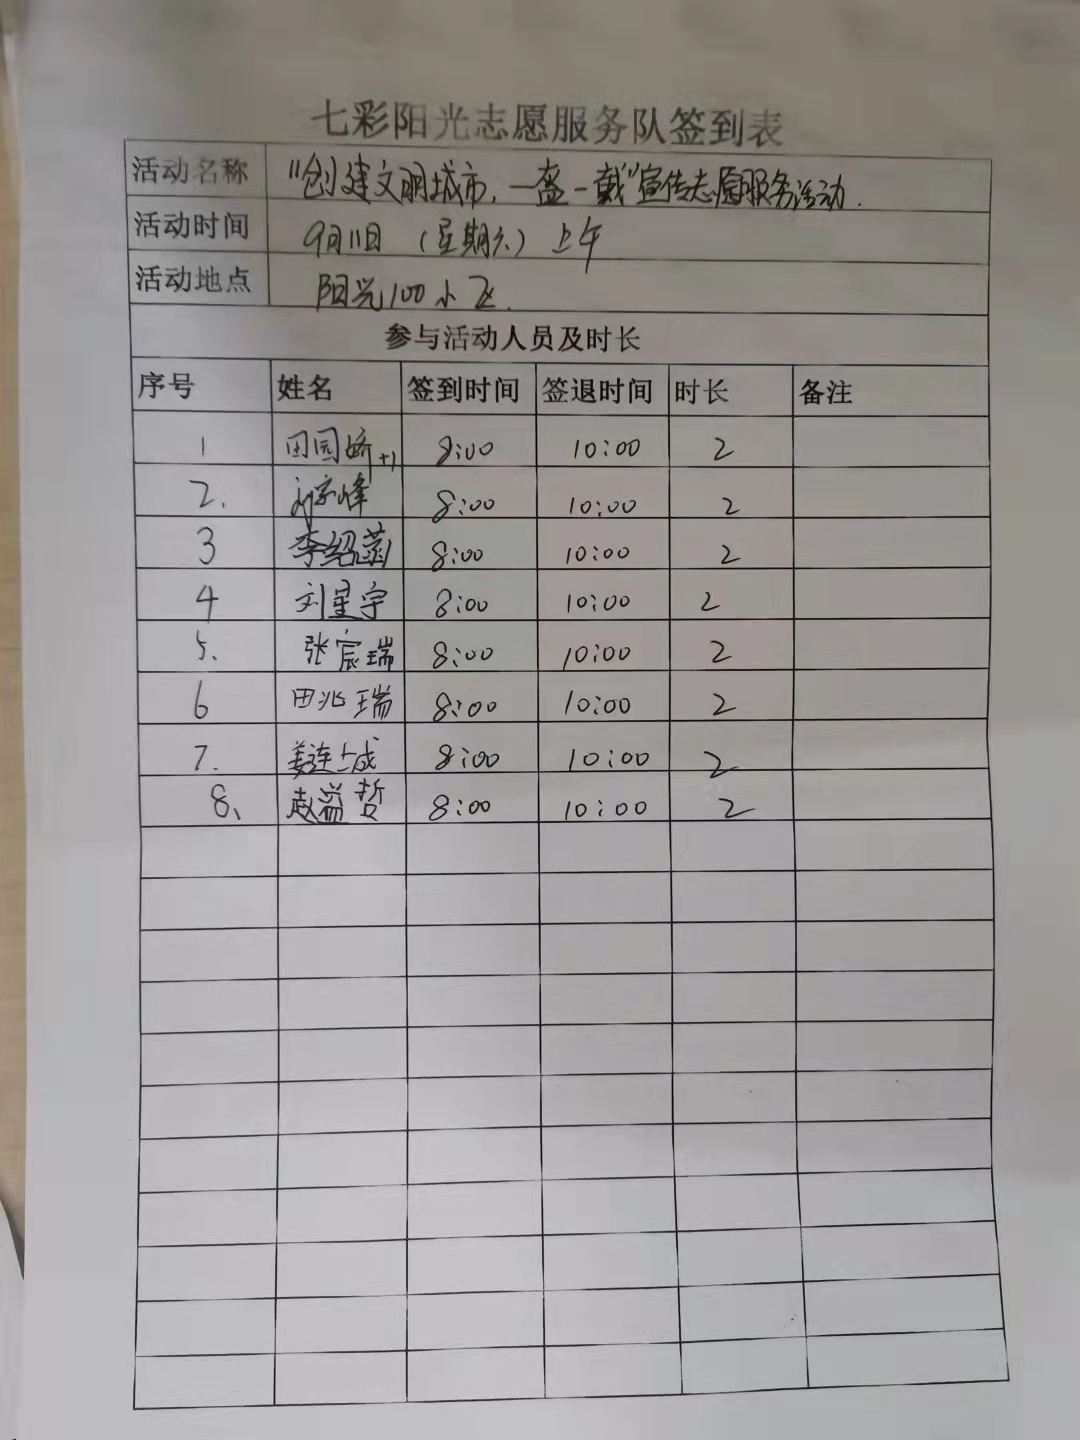 七彩阳光志愿服务队签到表
活动名称 "创建文明城市,一盔一戴"宣传志愿服务活动.
活动时间 9月11日 (星期六) 上午
活动地点 阳光100小区.
参与活动人员及时长
序号 姓名 签到时间 签退时间 时长 备注
1 田园娇+1 8:00 10:00 2
2. 8:00 10:00 2
3 李绍菡 8:00 10:00 2
4 刘星宇 8:00 10:00 2
5. 张宸瑞 8:00 10:00 2
6 田兆瑞 8:00 10:00 2
7. 姜连成 8:00 10:00 2
8、 赵益哲 8:00 10:00 2